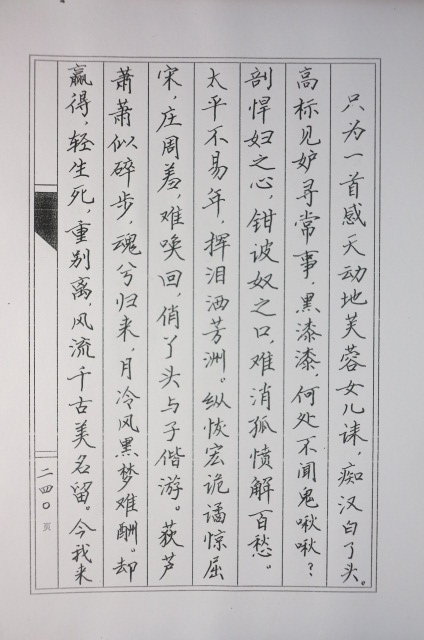 只为一首感天动地芙蓉女儿诔，痴汉白了头。
高标见妒寻常事，黑漆漆，何处不闻鬼啾啾？
剖悍妇之心，钳诐奴之口，难消孤愤解百愁。
太平不易年，挥泪洒芳洲。纵恢宏诡谲惊屈
宋，庄周羞，难唤回，俏丫头与子偕游。荻芦
萧萧似碎步，魂兮归来，月冷风黑梦难酬。却
赢得，轻生死，重别离，风流千古美名留。今我来
二四〇页